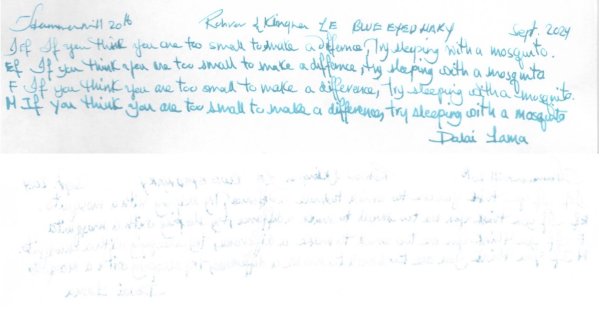 Hammermill 20lb Rohrer & Klingner LE BLUE EYED MARY Sept. 2024
IEF If you think you are too small to make a diffence, try sleeping with a mosquito.
EF If you think you are too small to make a diffence, try sleeping with a mosquito
F If you think you are too small to make a difference, try sleeping with a mosquito.
M If you think you are too small to make a difference, try sleeping with a mosquito
Dalai Lama